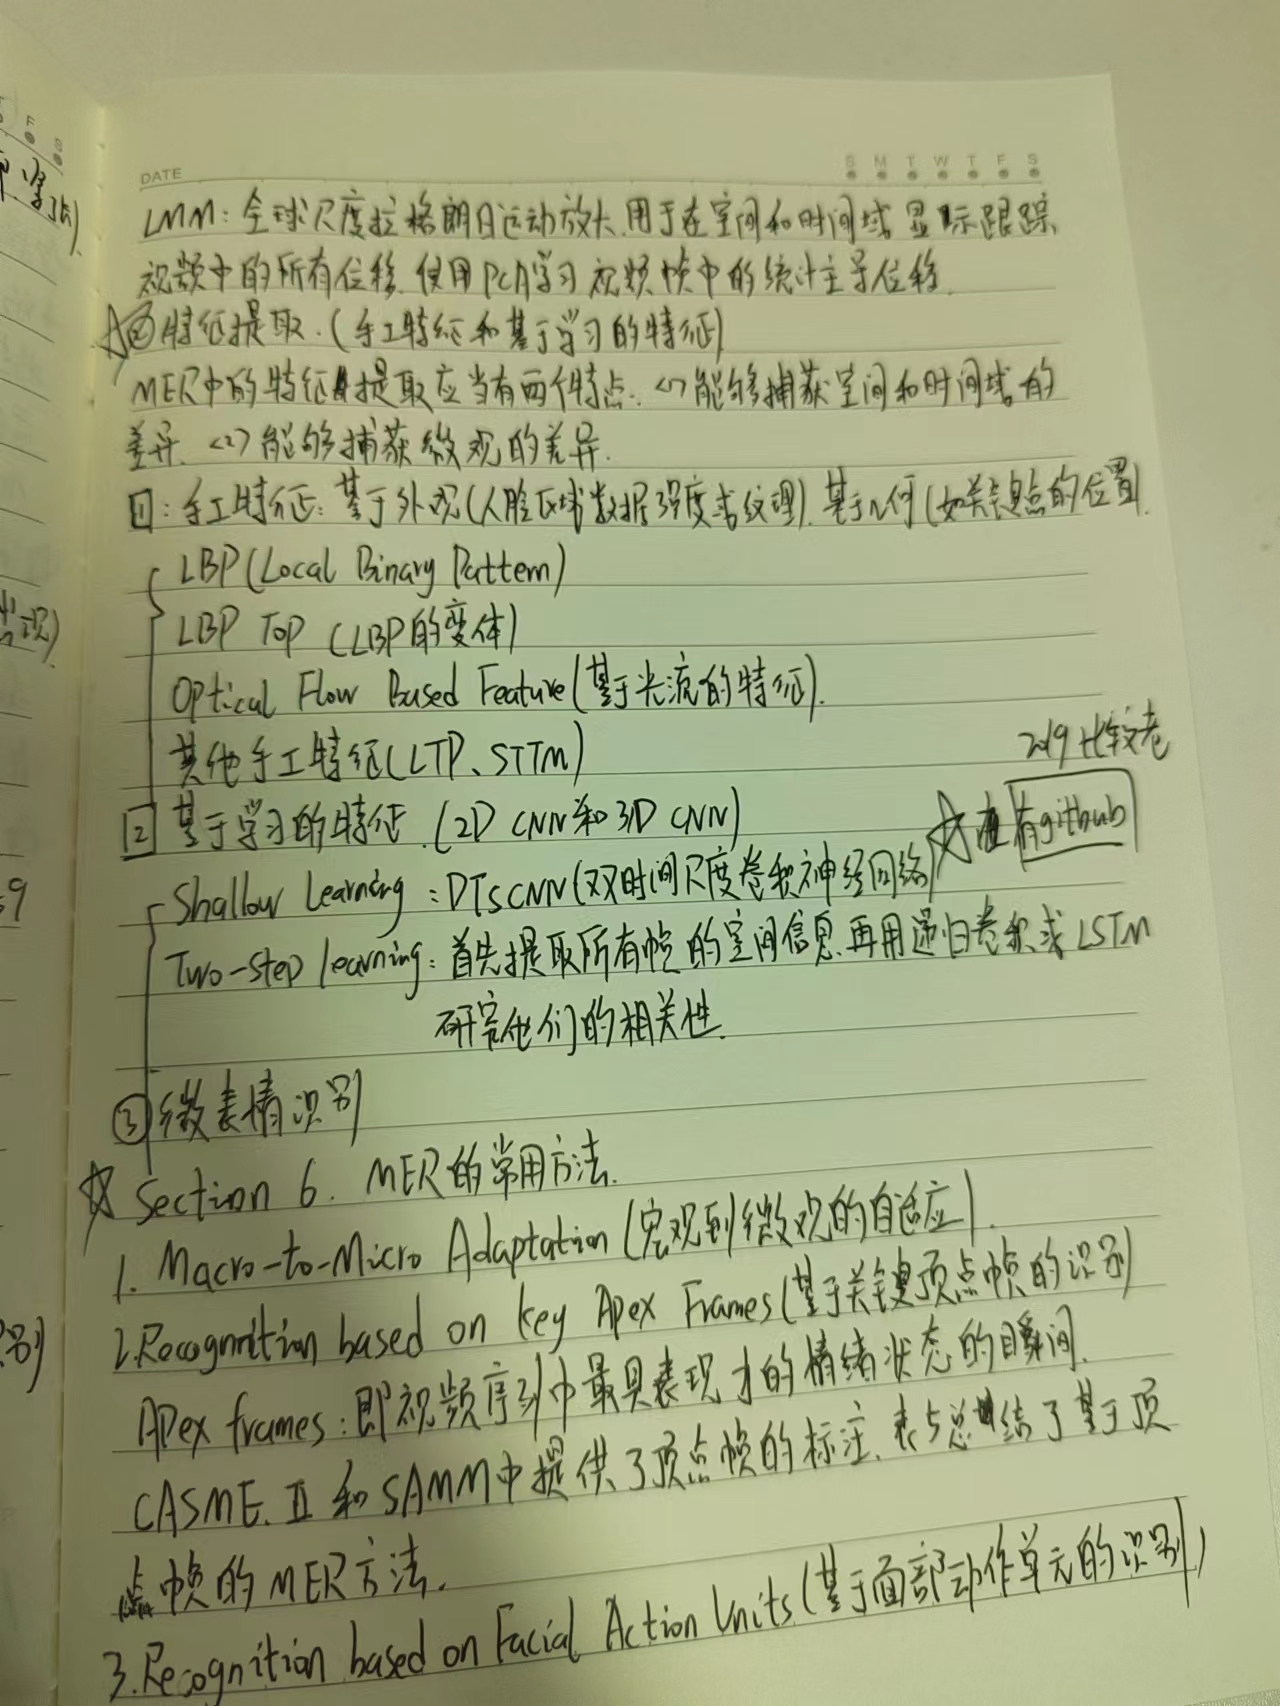 DATE
S M T W T F S
LMM: 全球尺度拉格朗日运动放大.用于在空间和时间域显示跟踪
视频中的所有位移.使用PCA学习视频帧中的统计主导位移.
☆②特征提取.(手工特征和基于学习的特征)
MER中的特征提取应当有两个特点.<1>能够捕获空间和时间域的
差异.<2>能够捕获微观的差异.
1:手工特征:基于外观(人脸区域数据强度或纹理).基于几何(如关键点的位置).
LBP(Local Binary Pattern)
LBP TOP (LBP的变体)
Optical Flow Based Feature(基于光流的特征).
其他手工特征(LTP、STTM)
2019 比较老
2 基于学习的特征.(2D CNN和3D CNN)
☆ 有github
Shallow Learning:DTSCNN(双时间尺度卷积神经网络)
Two-step learning:首先提取所有帧的空间信息.再用递归卷积或LSTM
研究他们的相关性.
③微表情识别
☆ Section 6. MER的常用方法.
1. Macro-to-Micro Adaptation(宏观到微观的自适应).
2.Recognition based on key Apex Frames(基于关键顶点帧的识别)
Apex frames:即视频序列中最具表现力的情绪状态的瞬间.
CASME.II 和SAMM中提供了顶点帧的标注.表5总结了基于顶
点帧的MER方法.
3.Recognition based on Facial Action Units(基于面部动作单元的识别)
F S
识)
9
别)